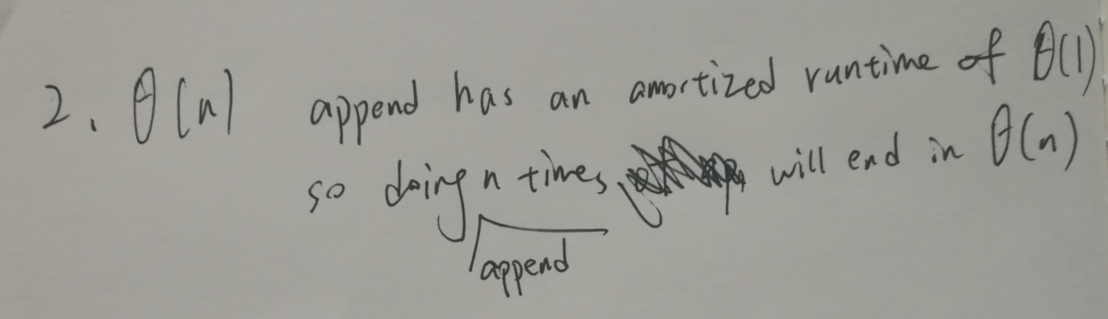 2. θ(n) append has an amortized runtime of θ(1)
so doing n times, will end in θ(n)
append